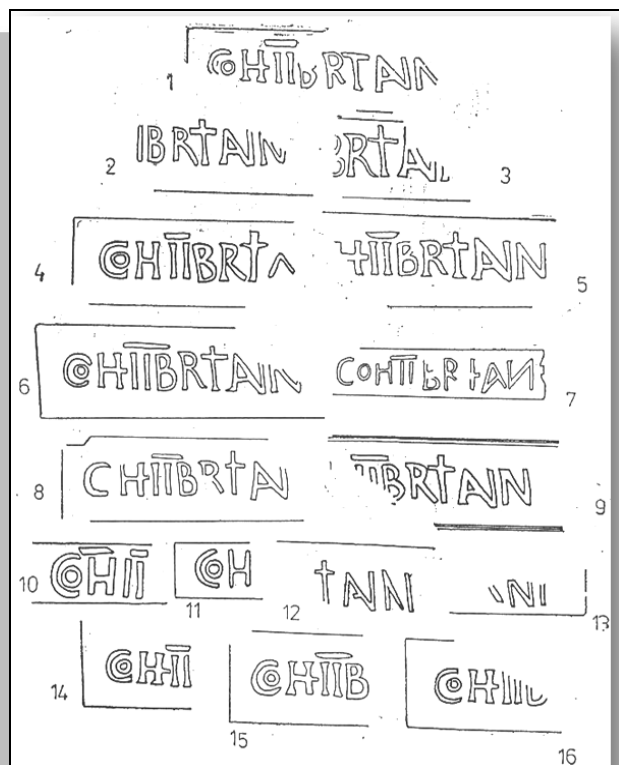 1 COHIIBRTANN
2 IBRTANN
BRTAN 3
4 COHIIBRTA
HIIBRTANN 5
6 COHIIBRTANN
COHIIBRTAN 7
8 CHIIBRTAN
IIBRTANN 9
10 COHII
11 COH
12 TANN
13
14 COHII
15 COHIIB
16 COHII